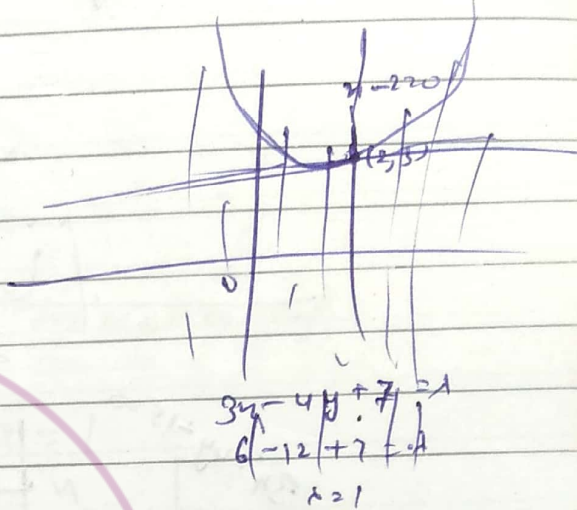 x-2=0
(2,3)
0 1
3x-4y+7=λ
6-12+7=λ
λ=1